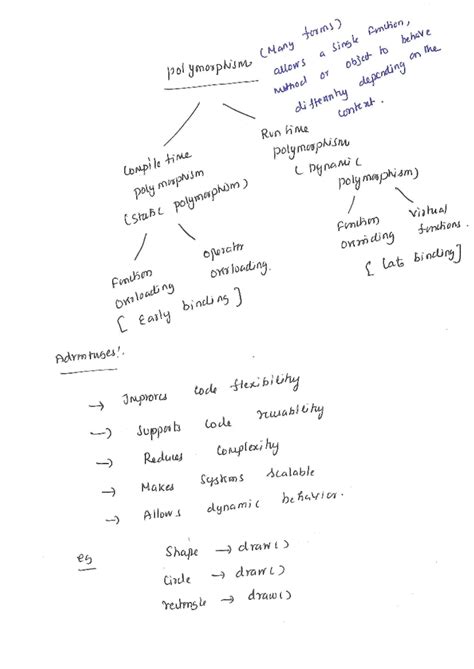 polymorphism (Many forms)
allows a single function,
method or object to behave
differently depending on the
context.
Compile time
polymorphism
(static polymorphism)
Run time
polymorphism
(Dynamic
polymorphism)
Function
overloading
operator
overloading.
[Early binding]
Function
overriding
virtual
functions.
[Late binding]
Advantages:
→ Improves code flexibility
→ Supports code reusability
→ Reduces complexity
→ Makes systems scalable
→ Allows dynamic behavior.
eg
Shape → draw()
Circle → draw()
rectangle → draw()